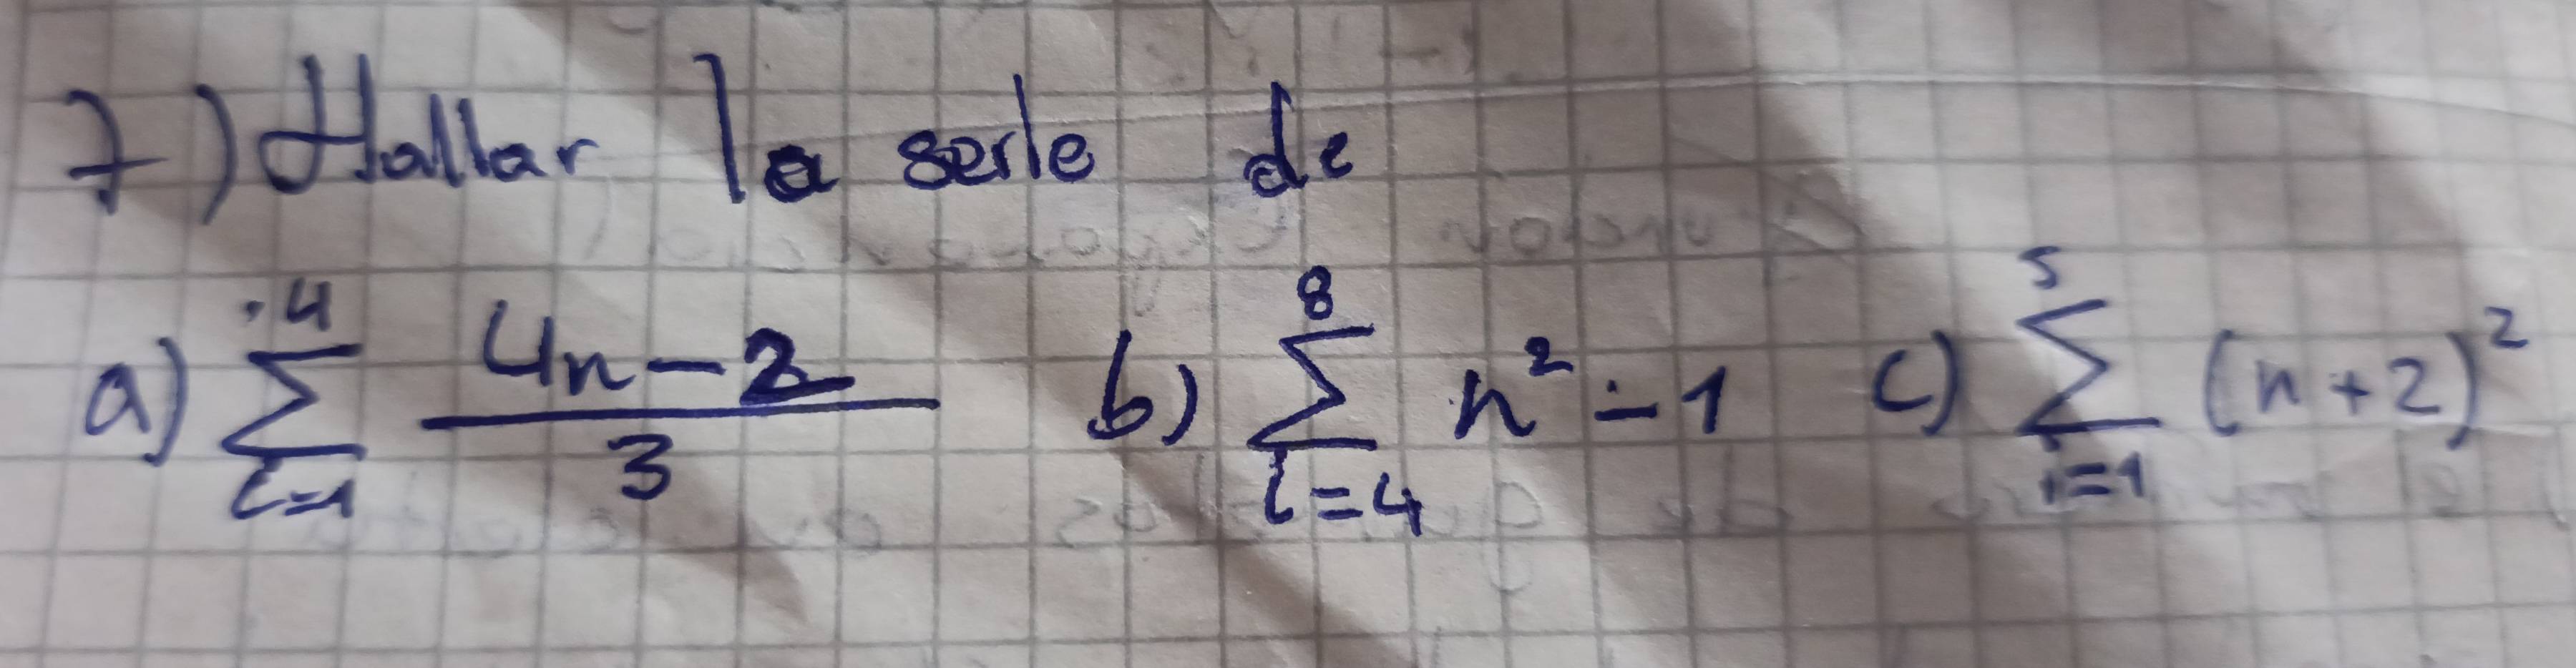 7) Hallar la serie de
a) \sum_{i=1}^{4} \frac{4n-2}{3} b) \sum_{i=4}^{8} n^2-1 c) \sum_{i=1}^{5} (n+2)^2